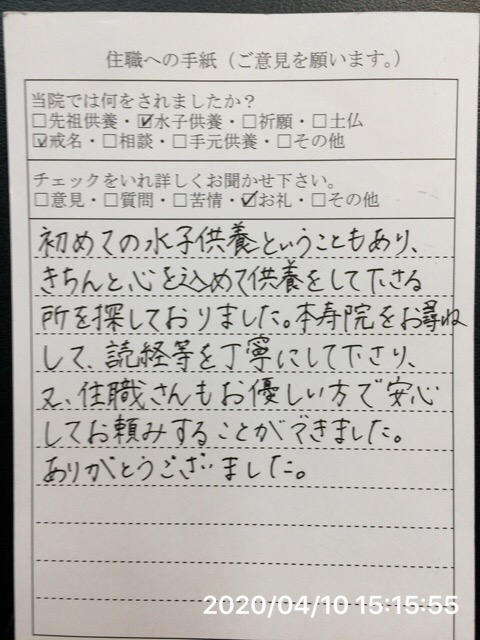 住職への手紙（ご意見を願います。）
当院では何をされましたか？
□先祖供養・☑水子供養・□祈願・□土仏
☑戒名・□相談・□手元供養・□その他
チェックをいれ詳しくお聞かせ下さい。
□意見・□質問・□苦情・☑お礼・□その他
初めての水子供養ということもあり、
きちんと心を込めて供養をして下さる
所を探しておりました。本寿院をお尋ね
して、読経等を丁寧にして下さり、
又、住職さんもお優しい方で安心
してお頼みすることができました。
ありがとうございました。
2020/04/10 15:15:55